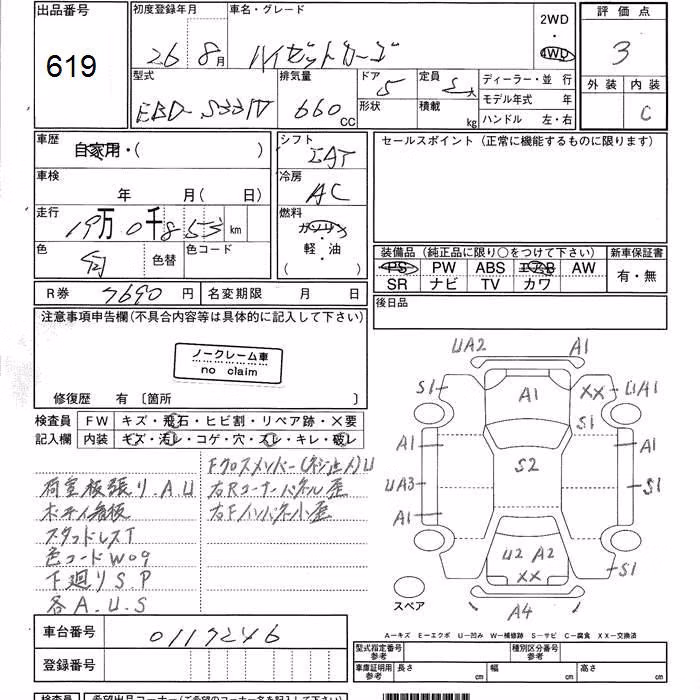 出品番号 初度登録年月 車名・グレード 2WD 評価点
619 26 8月 ハイゼットカーゴ 4WD 3
型式 排気量 ドア 定員 ディーラー・並 行 外装 内装
EBD-S331V 660 CC 5 形状 積載 kg モデル年式 年 C
ハンドル 左・右
車歴 自家用・( ) シフト セールスポイント (正常に機能するものに限ります)
IAT
車検 年 月(日) 冷房 AC
走行 19万0千853 km 燃料 ガソリン
色 色替 色コード 軽・油
( )
装備品 (純正品に限り○をつけて下さい) 新車保証書
PS PW ABS エアB AW 有・無
SR ナビ TV カワ
R券 7690 円 名変期限 月 日 後日品
注意事項申告欄(不具合内容等は具体的に記入して下さい)
ノークレーム車
no claim
修復歴 有 〔箇所 〕
検査員 FW キズ・飛石・ヒビ割・リペア跡・X要
記入欄 内装 キズ・汚レ・コゲ・穴・スレ・キレ・破レ
Fクロスメンバー(ネジ止メ)U
荷室板張り.A.U 右Rコーナーパネル歪
ボディ看板 右Fインパネ小歪
スタッドレスT
色コードW09
下廻りS.P
各A.U.S
UA2 A1
S1 A1 XX UA1
S1
A1 A1
S2
UA3 S1
A1
U2 A2
XX S1
スペア A4
A-キズ E-エクボ U-凹み W-補修跡 S-サビ C-腐食 XX-交換済
車台番号 0117246
登録番号
型式指定番号 参考 種別区分番号 参考
車庫証明用 参考 長さ cm 幅 cm 高さ cm
検査員 希望出品コーナー(ご希望のコーナー名を記入して下さい)